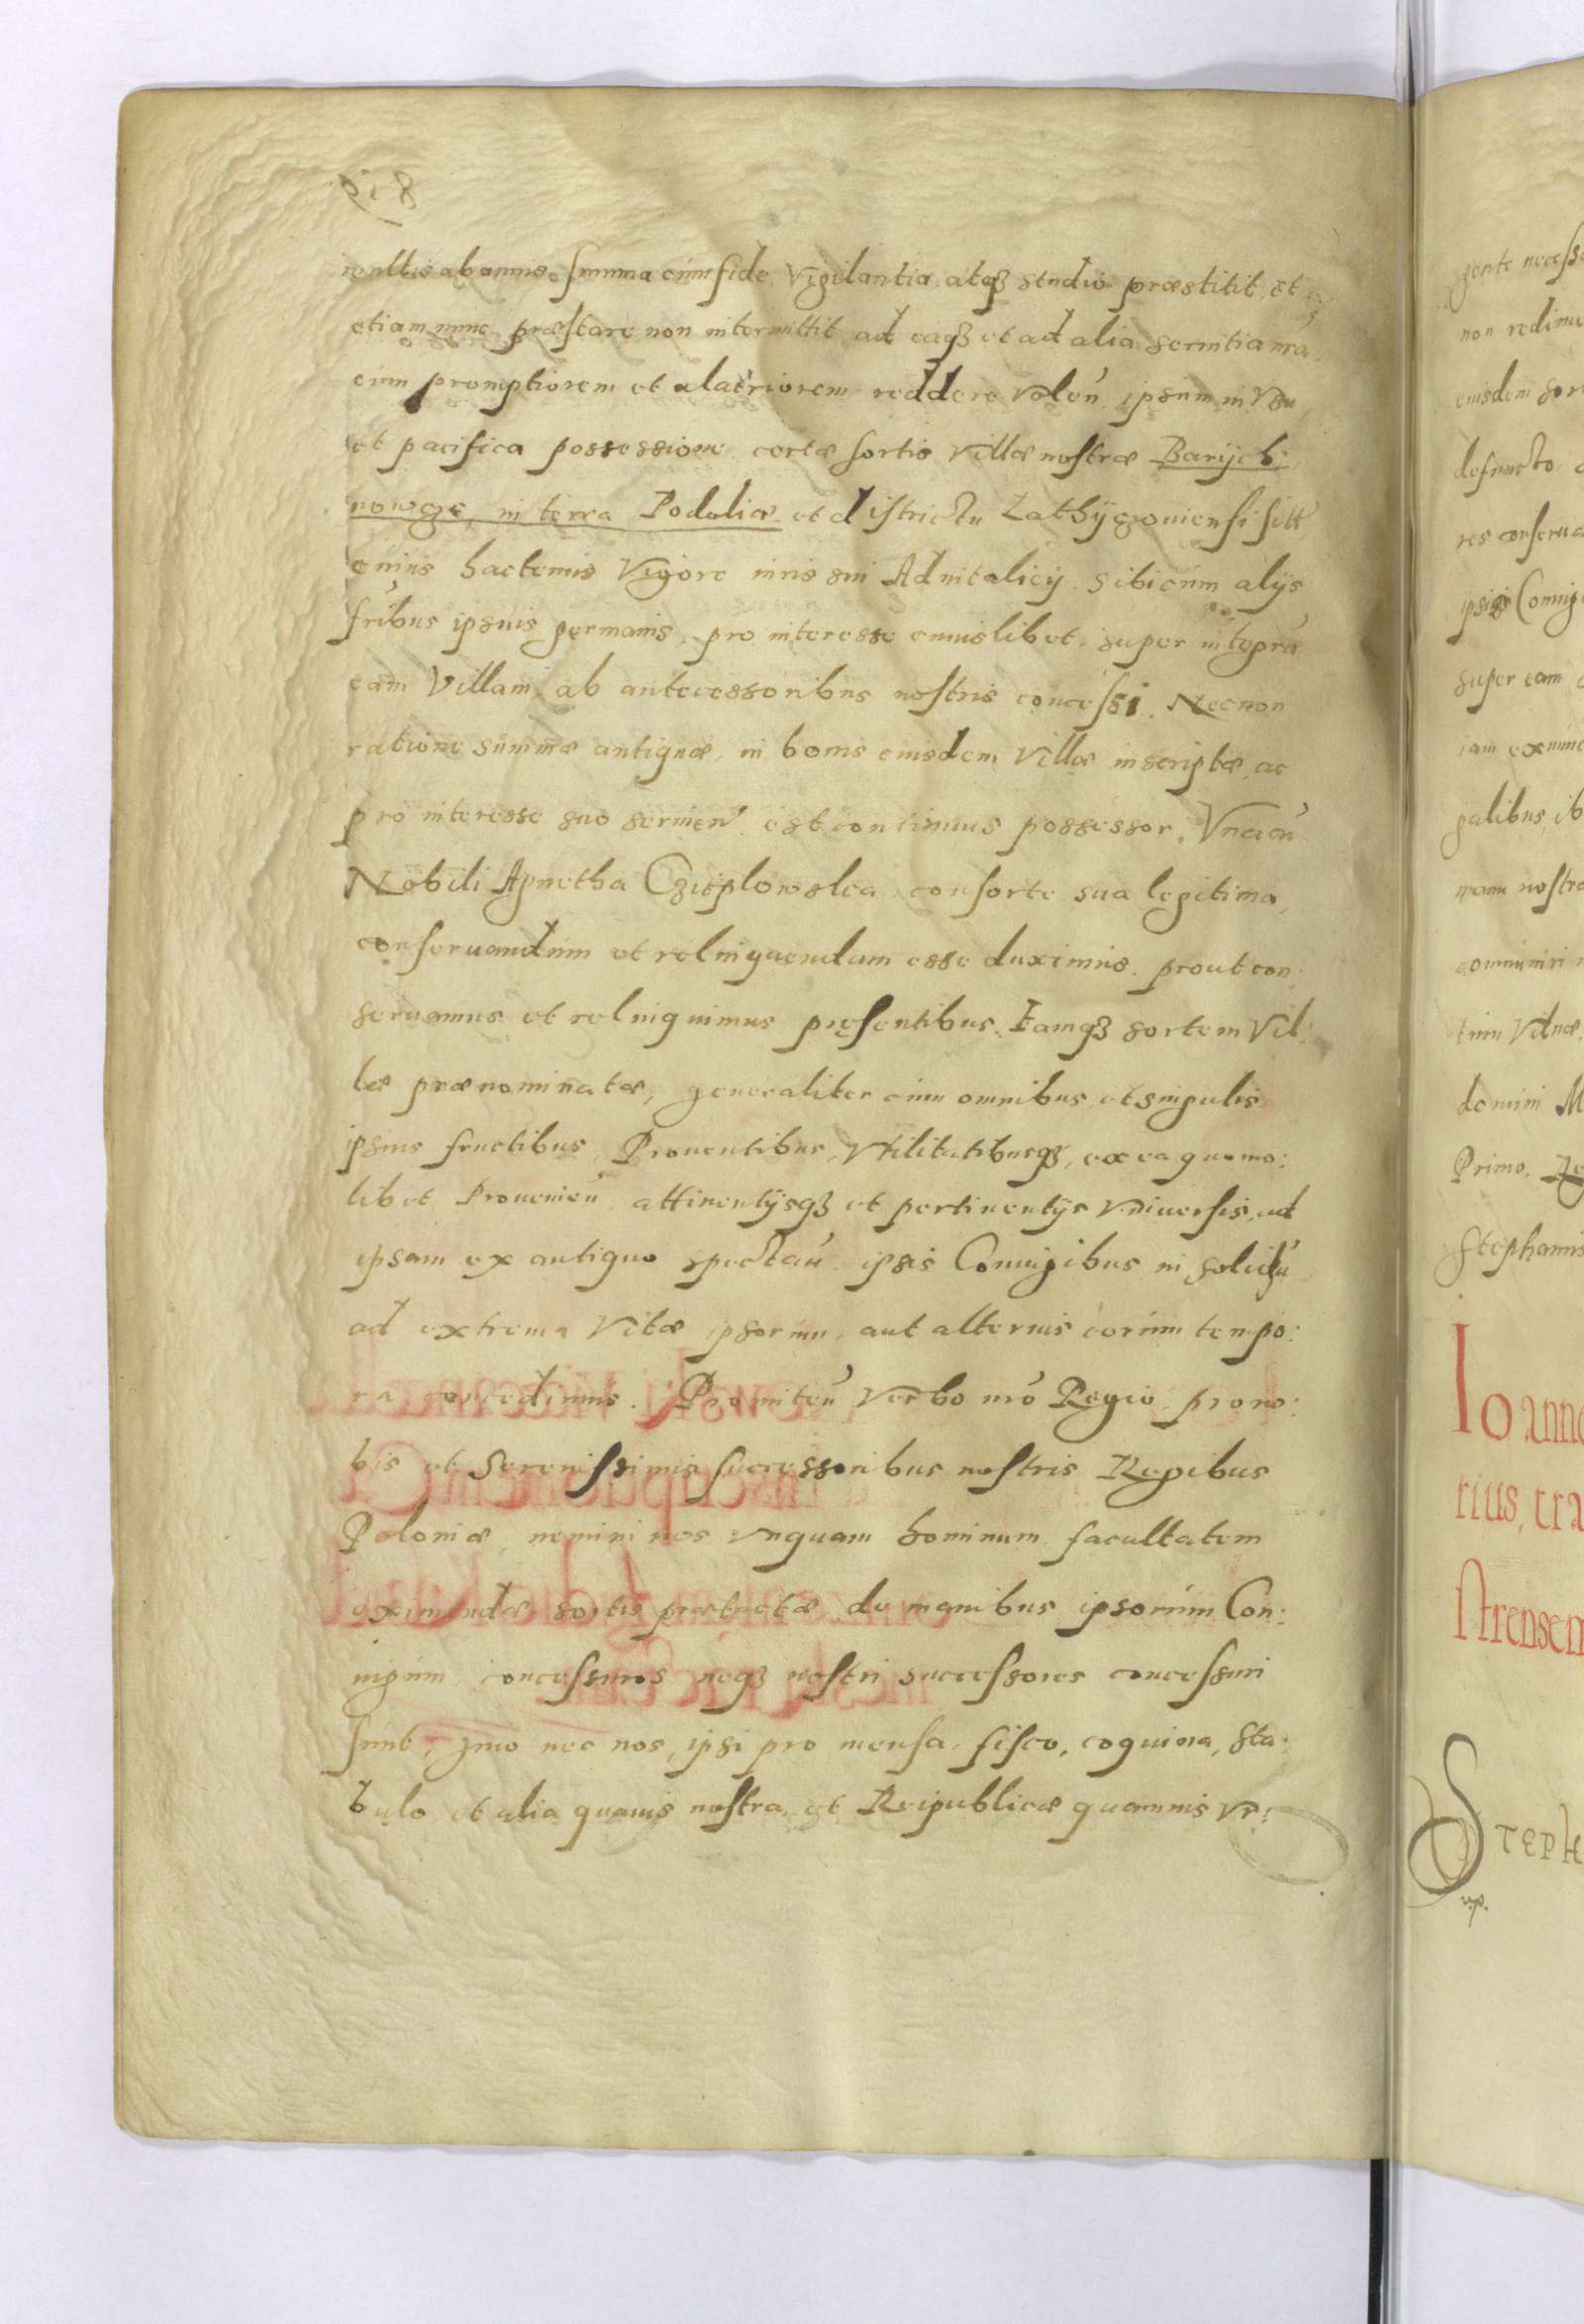 multis ab annis summa cum fide, Vigilantia, atqꝫ studio præstitit, et
etiam nunc præstare non intermittit, ad eaqꝫ et ad alia seruitia nrã
eum promptiorem et alacriorem reddere Volen̄ ipsum in Vsu,
et pacifica possessione certæ sortis Villæ nostræ Barijch:
nowcze, in terra Podoliæ et districtu Lathyczouiensi sitt
cuius hactenus Vigore iuris sui Aduitalicij sibi cum alijs
fribus ipsius germanis, pro interesse cuiuslibet, super integrã
eam Villam, ab antecessoribus nostris concessi. Necnon
ratione summæ antiquæ, in bonis eiusdem Villæ inscriptæ, ac
pro interesse suo seruien̄ est continuus possessor, Vnacū
Nobili Agnetha Czieplowska consorte sua legitima,
conseruandum et relinquendum esse duximus. prout con:
seruamus et relinquimus pręsentibus. Eamqꝫ sortem Vil:
læ prænominatæ, generaliter cum omnibus, et singulis
ipsius fructibus, Prouentibus, Vtilitatibusqꝫ, ex ea quomo:
libet Prouenien̄ attinentijsqꝫ et pertinentijs Vniuersis, ad
ipsam ex antiquo spectan̄ ipsis Coniugibus in solidū
ad extrema Vitæ ipsorum, aut alterius eorum tempo:
ra concedimus. Promitten̄ Verbo nrō Regio, pro no:
bis et Serenissimis successoribus nostris Regibus
Poloniæ, nemini nos vnquam hominum facultatem
eximendæ sortis prætactæ de manibus ipsorum Con:
iugum concessuros neqꝫ nostri successores concessuri
sunt, imo nec nos, ipsi pro mensa, fisco, coquina, sta:
bulo et alia quauis nostra et Reipublicæ quamuis vr:
gente necess
non redime
eiusdem sor
defuncto
res conserua
ipsis Coniug
super eam
iam exnunc
galibus, ib
manu nostra
communiri
tum Vilnæ,
domini M
Primo, Re
Stephanus
Ioanne
rius, tra
Arensem
Steph